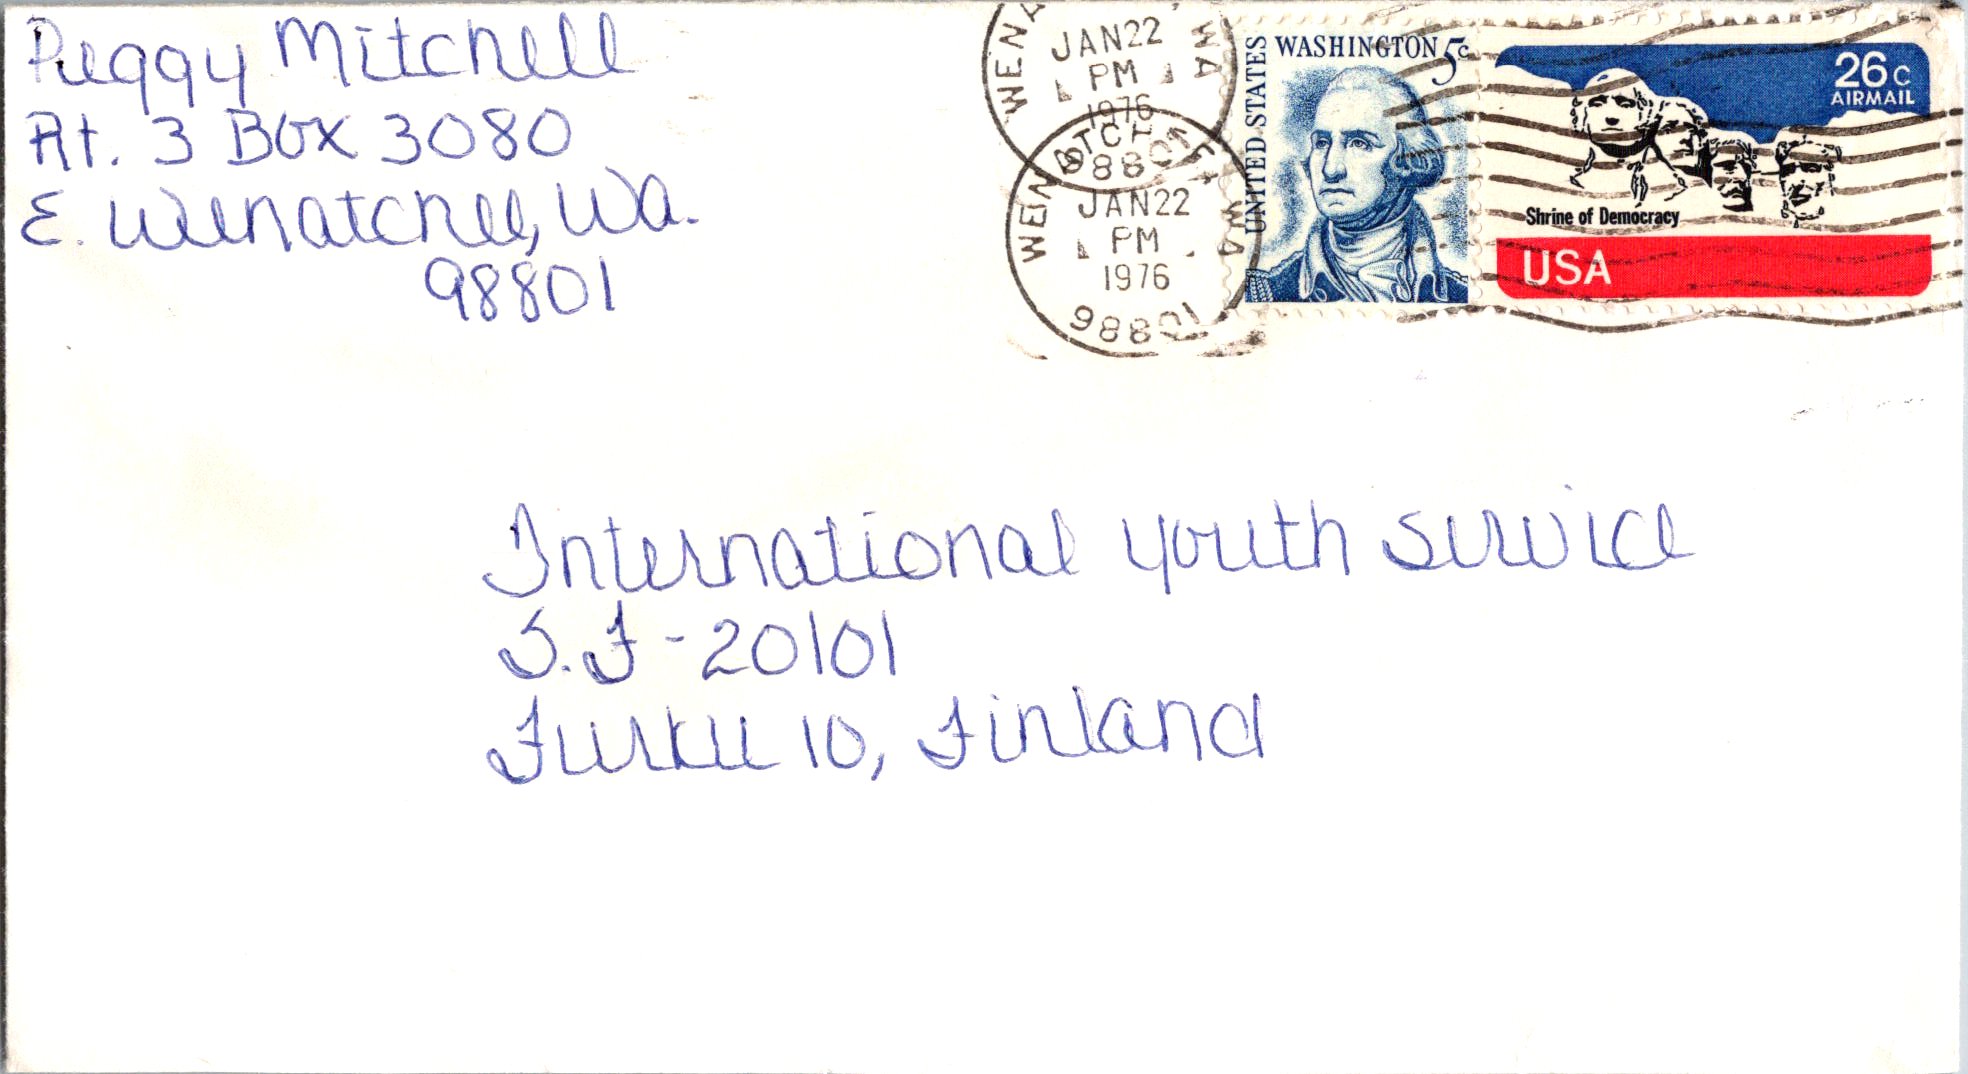 Peggy Mitchell
Rt. 3 Box 3080
E. Wenatchee, Wa.
98801
WENA WA
JAN 22
PM
1976
98801
WENATCHEE WA
JAN 22
PM
1976
98801
UNITED STATES
WASHINGTON 5c
26c
AIRMAIL
Shrine of Democracy
USA
International Youth Service
S.F - 20101
Turku 10, Finland